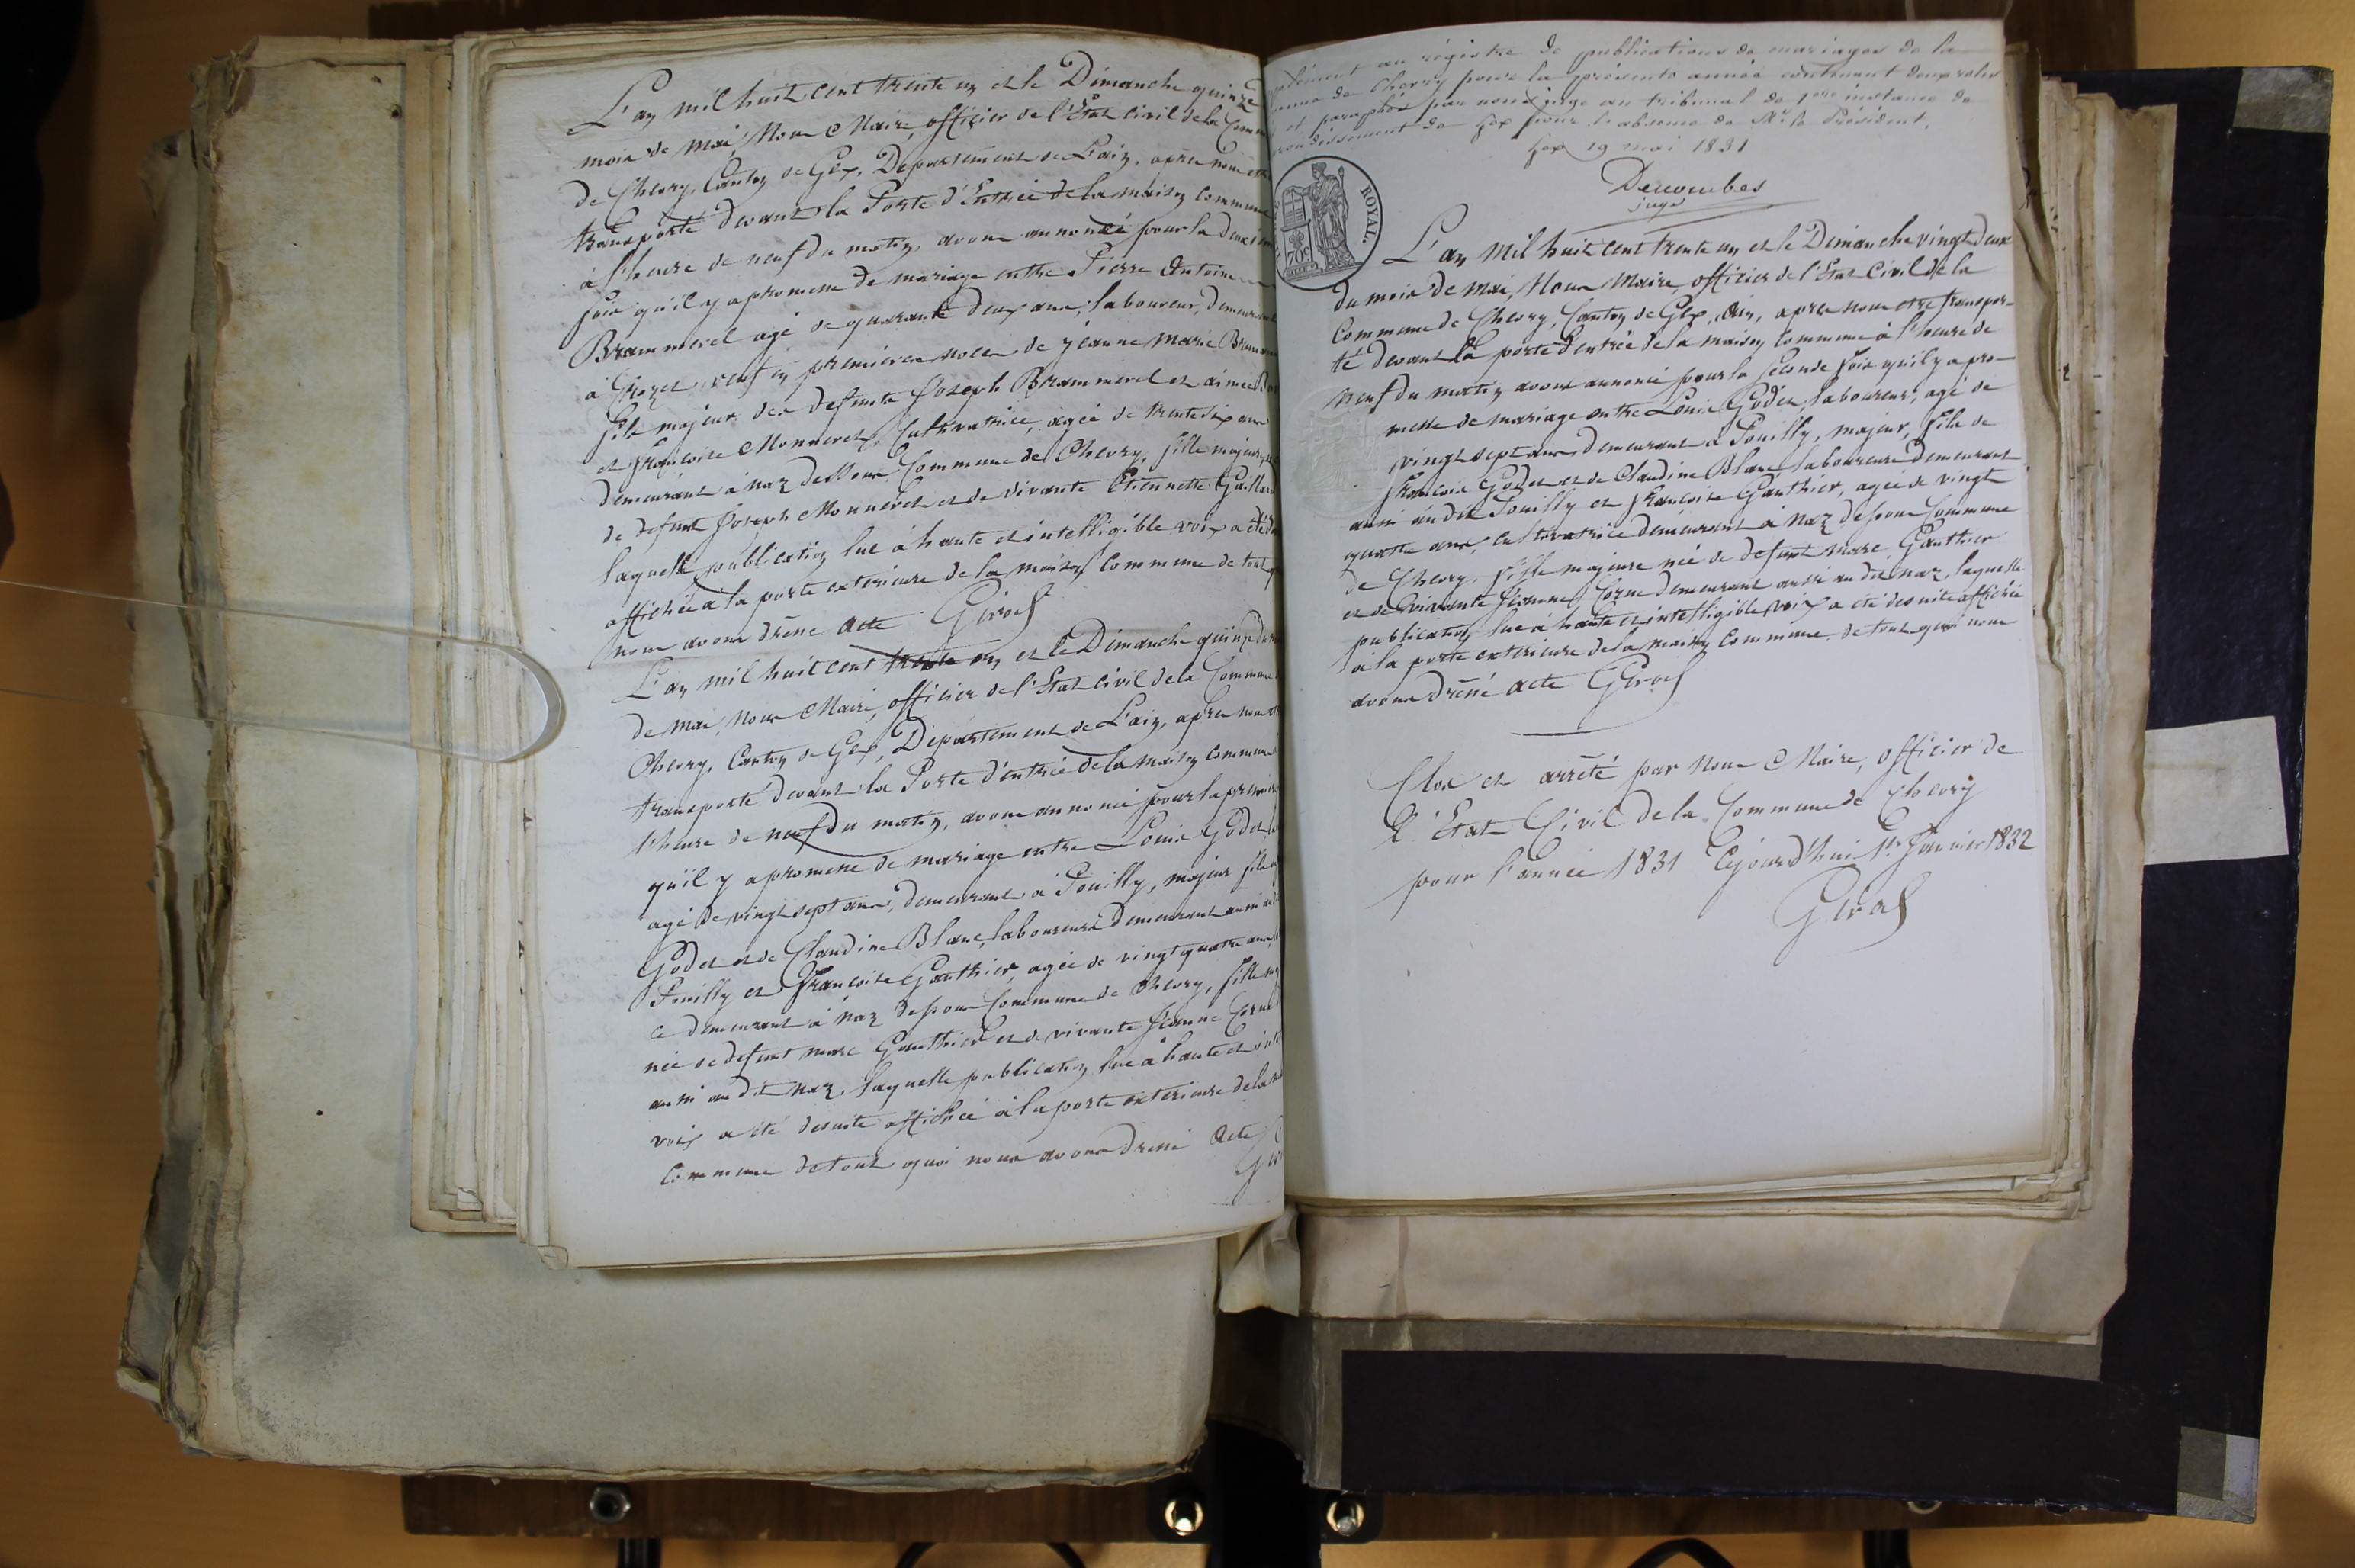 L'an mil huit cent trente un et le Dimanche quinze
mois de mai, Nous Maire, officier de l'Etat Civil de la
de Chevry, Canton de Gex, Département de L'ain, après nous
transporté devant la Porte d'Entrée de la maison commune
à l'heure de neuf du matin, avons annoncé pour la
fois qu'il y a promesse de mariage entre Pierre Antoine
Brammerel agé de quarante deux ans, laboureur, demeurant
à veuf en premières noces de jeanne Marie
fils majeur des defunts Joseph Brammerel et aimée
et françoise Monneret, Cultivatrice, agée de trente six ans
demeurant à Naz dessous Commune de Chevry, fille majeure
de defunt Joseph Monneret et de vivante Etiennette Gaillard
laquelle publication lue à haute et intelligible voix a été
affichée à la porte exterieure de la maison Commune de tout
nous avons dréné acte Girod
L'an mil huit cent trente un et le Dimanche quinze du
de mai, Nous Maire, officier de l'Etat Civil de la Commune
Chevry, Canton de Gex, Département de L'ain, après nous
transporté devant la Porte d'entrée de la maison commune
l'heure de neuf du matin, avons annoncé pour la
qu'il y a promesse de mariage entre Louis Godet
agé de vingt sept ans, demeurant à Pouilly, majeur fils
Godet et de Claudine Blanc, laboureurs demeurant aussi
Pouilly et françoise Gauthier, agée de vingt quatre ans
ce demeurant à Naz dessous Commune de Chevry, fille
née de defunt marc Gauthier et de vivante Jeanne
aussi au dit Naz, laquelle publication lue à haute et
voix a été desuite affichée à la porte exterieure de la
Commune de tout quoi nous avons dréné acte
au régistre de publications de mariages de la
de Chevry pour la présente année contenant deux roles
et paraphés par nous juge au tribunal de 1ere instance de
de Gex pour l'absence de Mr le Président.
Gex 19 mai 1831
juge
ROYAL.
70c
L'an Mil huit cent trente un et le Dimanche vingt deux
du mois de mai, Nous Maire, officier de l'Etat Civil de la
Commune de Chevry, Canton de Gex, Ain, après nous etre transpor-
té devant la porte d'entrée de la maison Commune à l'heure de
neuf du matin avons annoncé pour la seconde fois qu'il y a pro-
messe de mariage entre Louis Godet, laboureur, agé de
vingt sept ans demeurant à Pouilly, majeur, fils de
françois Godet et de Claudine Blanc laboureurs demeurant
aussi au dit Pouilly et françoise Gauthier, agée de vingt
quatre ans, cultivatrice demeurant à Naz dessous Commune
de Chevry, fille majeure née de defunt marc Gauthier
et de vivante Jeanne demeurant aussi au dit Naz, laquelle
publication lue à haute et intelligible voix a été desuite affichée
à la porte exterieure de la maison Commune. de tout quoi nous
avons dréné acte Girod
Clos et arrêté par Nous Maire, officier de
L'Etat Civil de la Commune de Chevry
pour l'année 1831 Cejourd'hui 1er Janvier 1832
Girod